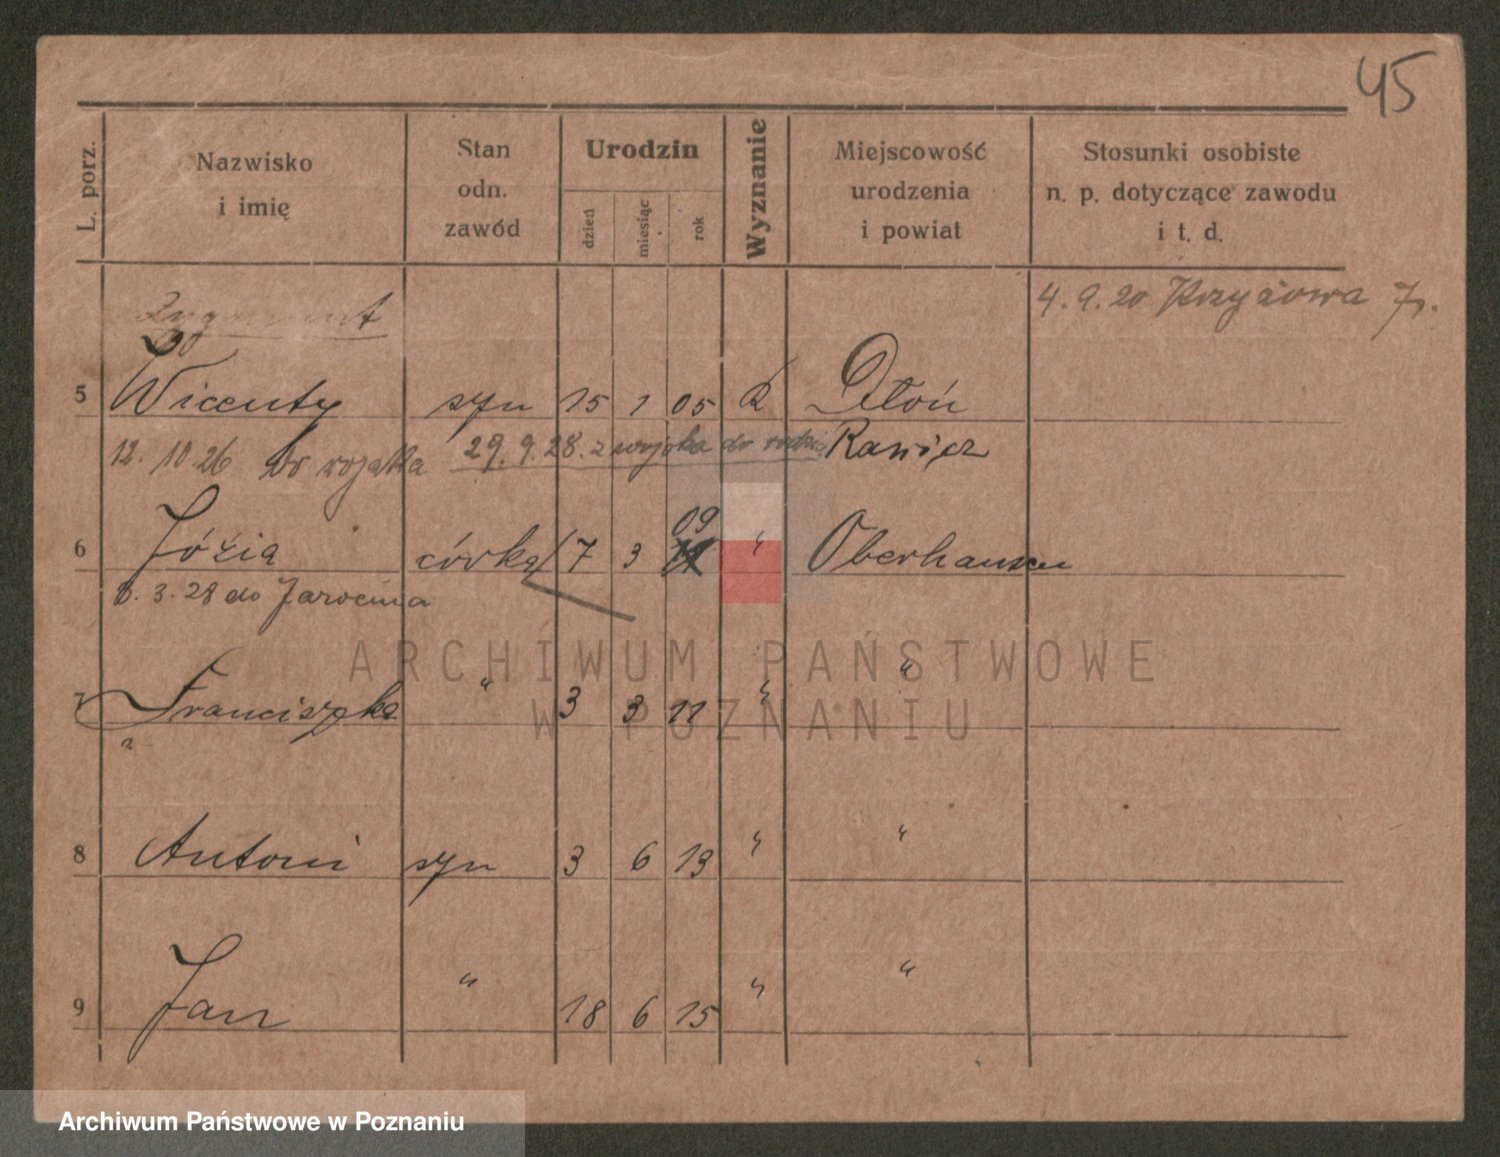 45
L. porz. Nazwisko i imię Stan odn. zawód Urodzin dzień miesiąc rok Wyznanie Miejscowość urodzenia i powiat Stosunki osobiste n. p. dotyczące zawodu i t. d.
4.9.20 Krzyżowa 7
Zygmunt
5 Wicenty syn 15 1 05 R Dłoń
12.10.26 do wojska 29.9.28. z wojska do Rawicz
6 Józia córka 7 3 09 " Oberhausen
8.3.28 do Jarocina
7 Franciszka " 3 3 11 " "
8 Antoni syn 3 6 13 " "
9 Jan " 18 6 15 " "
ARCHIWUM PAŃSTWOWE
W POZNANIU
Archiwum Państwowe w Poznaniu